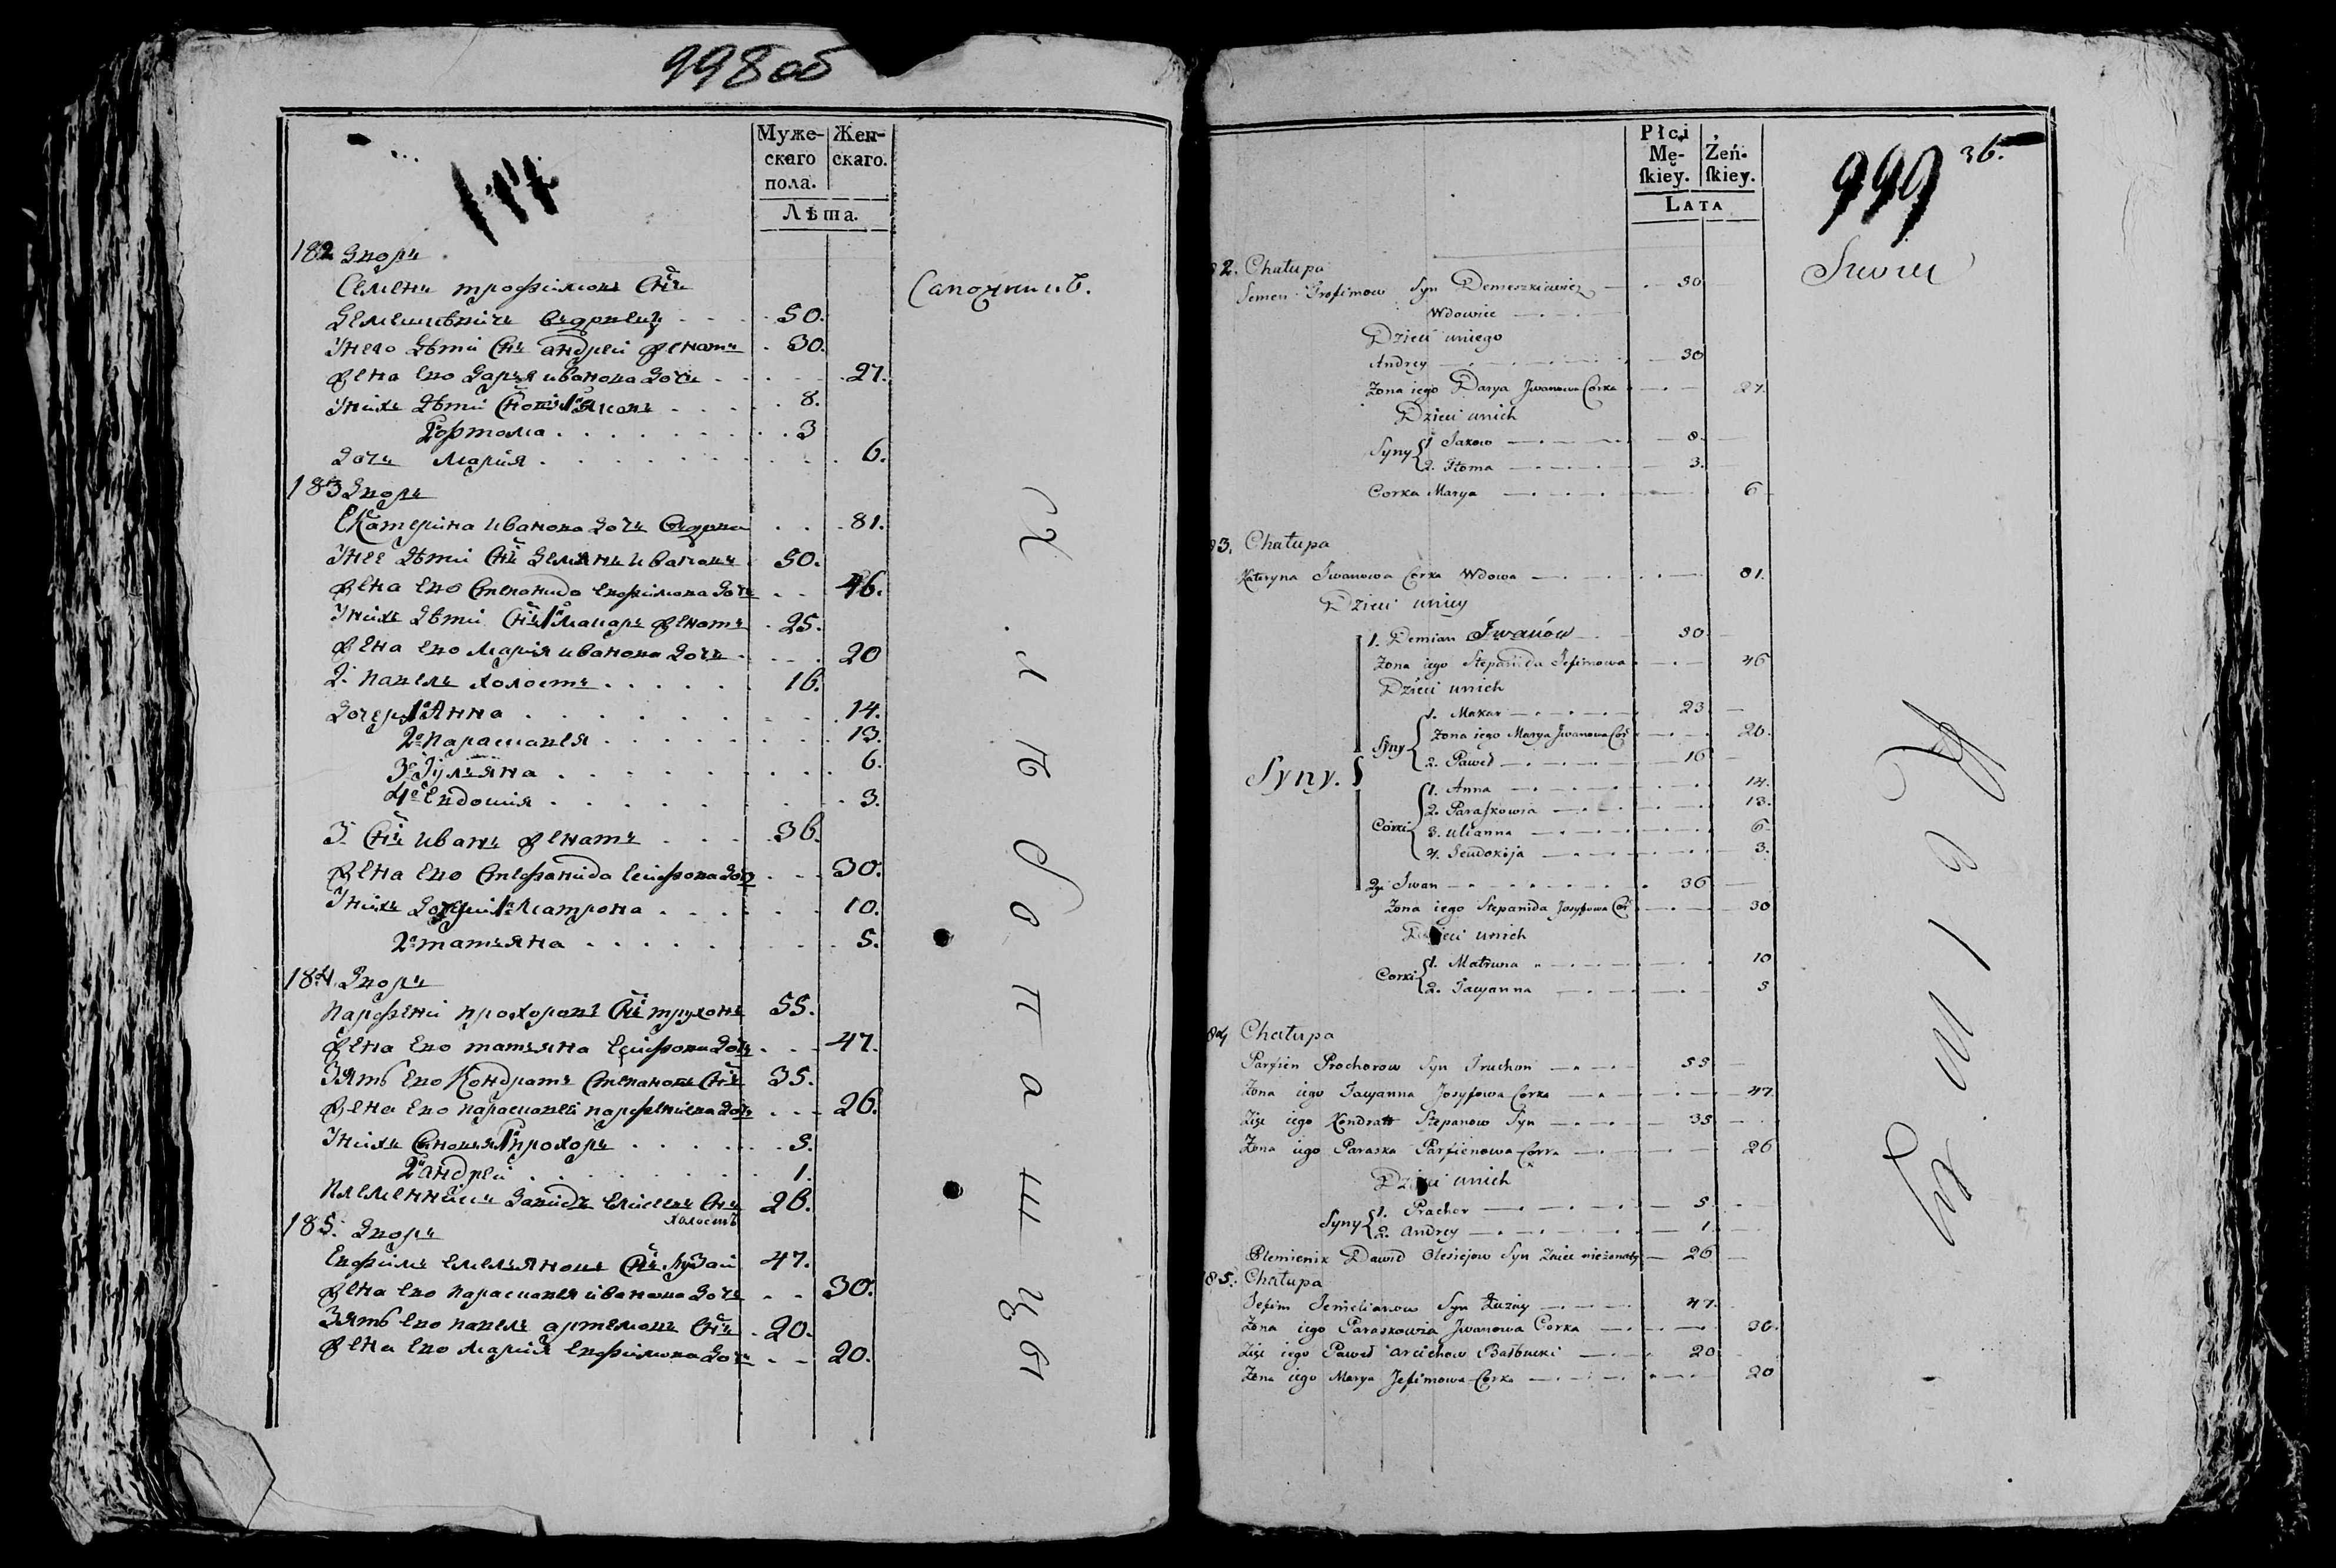 998об
Муже- Жен-
скаго скаго.
пола.
Лѣта.
182 Дворъ
Семенъ трофимовъ Снъ
Демешкѣвичъ вдовецъ 50.
Унего Дѣти Снъ андрей женатъ 30.
жена Ево Дарья иванова Дочь 27.
Унихъ Дѣти 1й Яковъ 8.
2й Фтома 3
Дочь Мария 6.
Сапожникъ.
183 Дворъ
Екатерина иванова Дочь Вдова 81.
Унее Дѣти Снъ Демянъ ивановъ 50.
жена Ево Степанида Ефимова Дочь 46.
Унихъ Дѣти Снъ 1й Макаръ женатъ 25.
жена Ево Мария иванова Дочь 20
2. Павелъ холостъ 16.
Дочери 1я Анна 14.
2я Парасковея 13.
3я Улияна 6.
4я Евдокия 3.
3. Снъ иванъ женатъ 36.
жена Ево Стефанида Есифова Дочь 30.
Унихъ Дочери 1я Матрона 10.
2я татьяна 5.
184 Дворъ
Парфени прохоровъ Снъ трухонъ 55.
жена Ево татьяна Есифова Дочь 47.
Зять Ево Кондратъ Степановъ Снъ 35.
жена Ево парасковей парфениева Дочь 26.
Унихъ Сновья 1й прохоръ 5.
2й андрей 1.
Племенникъ Давидъ Елисеевъ Снъ 26.
холостъ
185. Дворъ
Евфимъ Емельяновъ Снъ Лузай 47.
жена Ево парасковея иванова Дочь 30.
Зять Ево павелъ артемовъ Снъ 20.
жена Ево мария Евфимова Дочь 20.
хлѣбопашцы
Płci
Mę- Żeń-
ſkiey. ſkiey.
LATA
999 36.
82. Chałupa
Semen Trofimow Syn Demeszkiewicz 50
Wdowiec
Dzieci uniego
Andrey 30
Zona iego Darya Jwanowa Corka 27.
Dzieci unich
Syny 1 Jakow 8.
2. Ftoma 3.
Corka Marya 6
Szewc
83. Chałupa
Kateryna Jwanowa Corka Wdowa 81.
Dzieci uniey
Syny.
1. Demian Jwanów 50
Zona iego Stepanida Jefimowa 46
Dzieci unich
Syny 1. Makar 25
Zona iego Marya Jwanowa Cor 20.
2. Paweł 16
Corki 1. Anna 14.
2. Paraſkowia 13.
3. Ulianna 6
4. Jeudokija 3.
2gi Jwan 36
Zona iego Stepanida Josyfowa Cor 30
Dzieci unich
Corki 1. Matruna 10
2. Tacyanna 5
84 Chałupa
Parfien Prochorow Syn Truchon 55
Zona iego Tacyanna Josyfowa Corka 47
Zięć iego Kondratt Stepanow Syn 35
Zona iego Paraska Parfienowa Corka 26
Dzieci unich
Syny 1. Prachor 5
2. Andrey 1
Plemienik Dawid Olesiejow Syn nieżonaty 26
85. Chałupa
Jefim Jemelianow Syn Łuzay 47.
Zona iego Paraskowia Jwanowa Corka 30.
Zięć iego Paweł 20
Zona iego Marya Jefimowa Corka 20